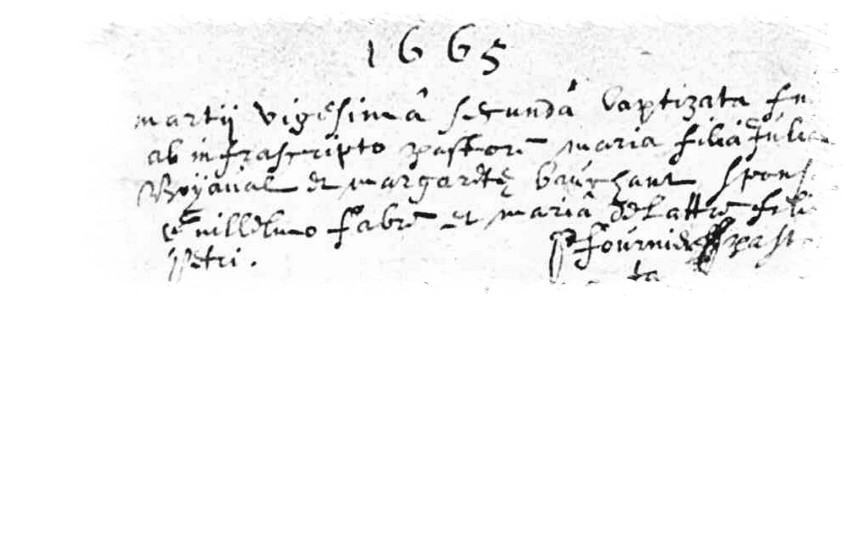 1665
martij vigesimâ secundâ baptizata fu
ab infrascripto pastore maria filia Julia
Boyaval et margaretę bauchant spons
Guillelmo fabre et mariâ de lattre fili
petri.
fournier past